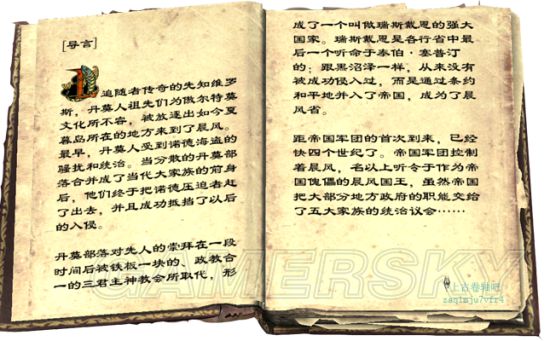 [导言]
追随者传奇的先知维罗
斯，丹莫人祖先们为傲尔特莫
文化所不容，被放逐出如今夏
暮岛所在的地方来到了晨风。
最早，丹莫人受到诺德海盗的
骚扰和统治。当分散的丹莫部
落合并成了当代大家族的前身
后，他们终于把诺德压迫者赶
了出去，并且成功抵挡了以后
的入侵。
丹莫部落对先人的崇拜在一段
时间后被铁板一块的、政教合
一的三君主神教会所取代，形
成了一个叫做瑞斯戴恩的强大
国家。瑞斯戴恩是各行省中最
后一个听命于泰伯·塞普汀
的；跟黑沼泽一样，从来没有
被成功侵入过，而是通过条约
和平地并入了帝国，成为了晨
风省。
距帝国军团的首次到来，已经
快四个世纪了。帝国军团控制
着晨风，名以上听令于作为帝
国傀儡的晨风国王，虽然帝国
把大部分地方政府的职能交给
了五大家族的统治议会……
GAMERSKY
上古卷轴吧
zaq1mju7vfr4